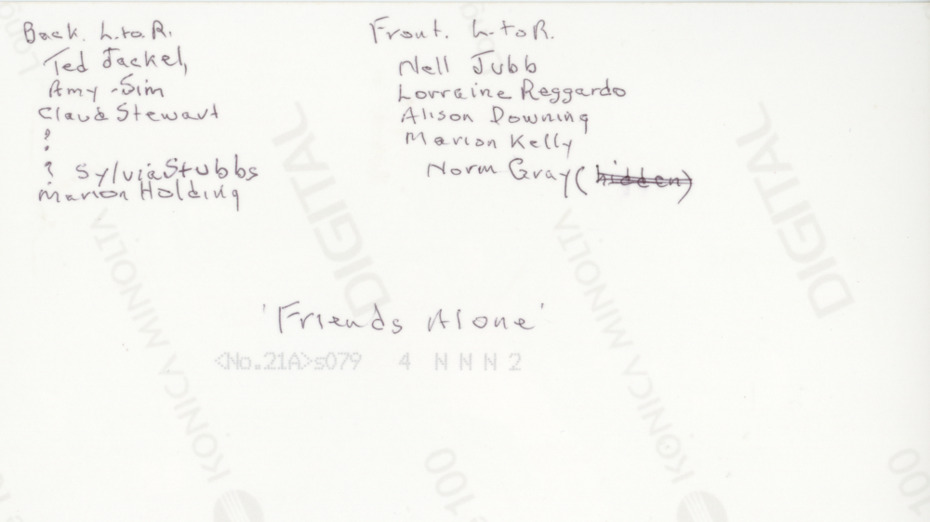 Back. L.to.R.
Ted Jackel,
Amy -Sim
Claude Stewart
?
? Sylvia Stubbs
Marion Holding
Front. L-to R.
Nell Jubb
Lorraine Reggardo
Alison Downing
Marion Kelly
Norm Gray (hidden)
'Friends Alone'
<No.21A>s079 4 N N N 2
DIGITAL
DIGITAL
KONICA MINOLTA
KONICA MINOLTA
KONICA MINOLTA
100
100